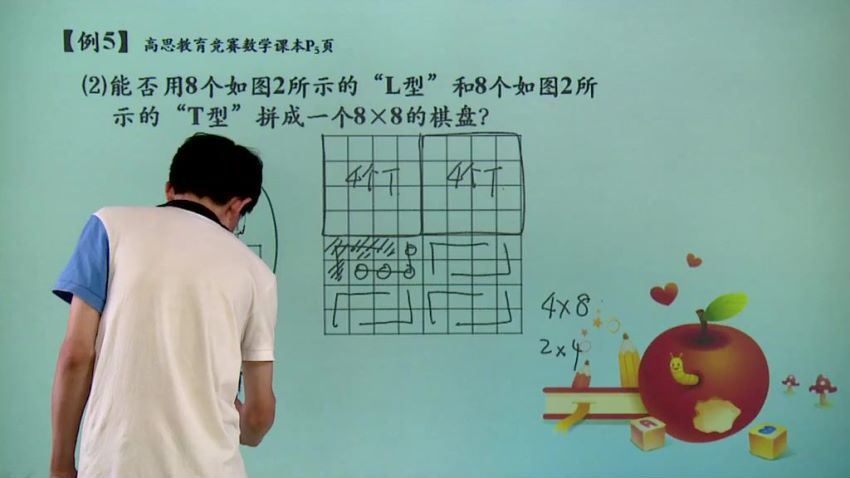 【例5】高思教育竞赛数学课本P₅頁
(2)能否用8个如图2所示的“L型”和8个如图2所
示的“T型”拼成一个8×8的棋盘？
4个T 4个T
4×8
2×4